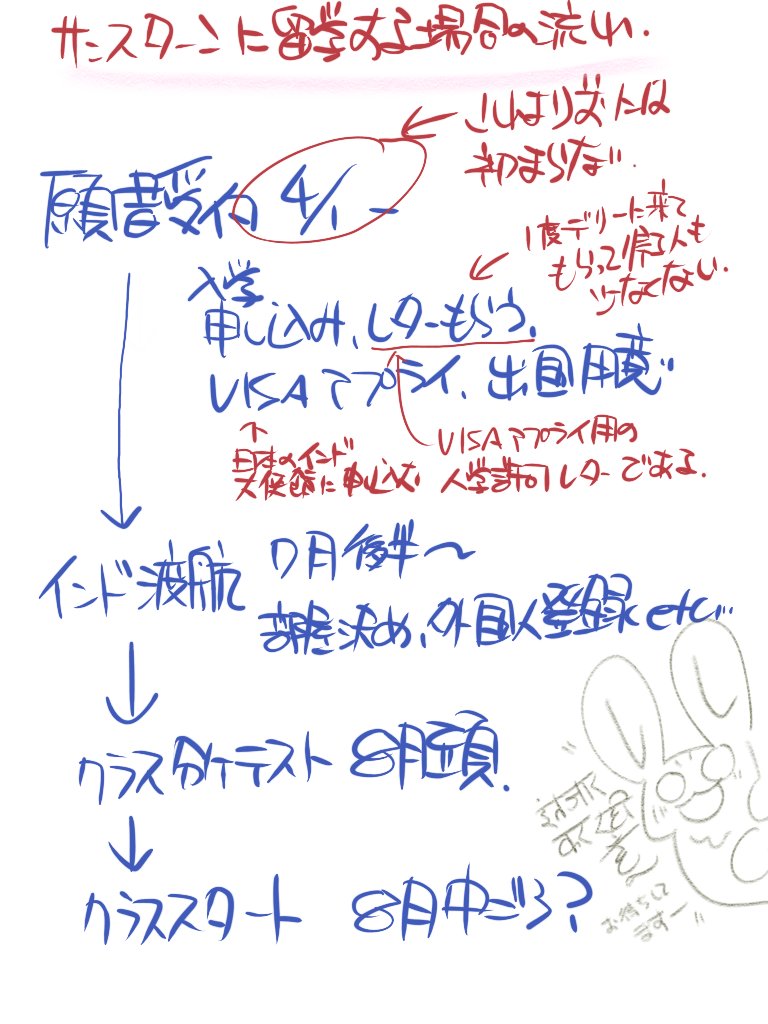 サンスターンに留学する場合の流れ.
初まらない.
願書受付 4/1 ー
1度デリーに来て
もらって帰る人も
少なくない.
入学
申し込み、レターもらう、
VISAアプライ、出国用意
VISAアプライ用の
入学許可レターである.
日本のインド
大使館に申し込む
インド渡航 7月後半〜
部屋決め、外国人登録 etc...
クラス分けテスト 8月頭.
クラススタート 8月中ごろ?
इंतजार
कर रही
お待ちして
ますー